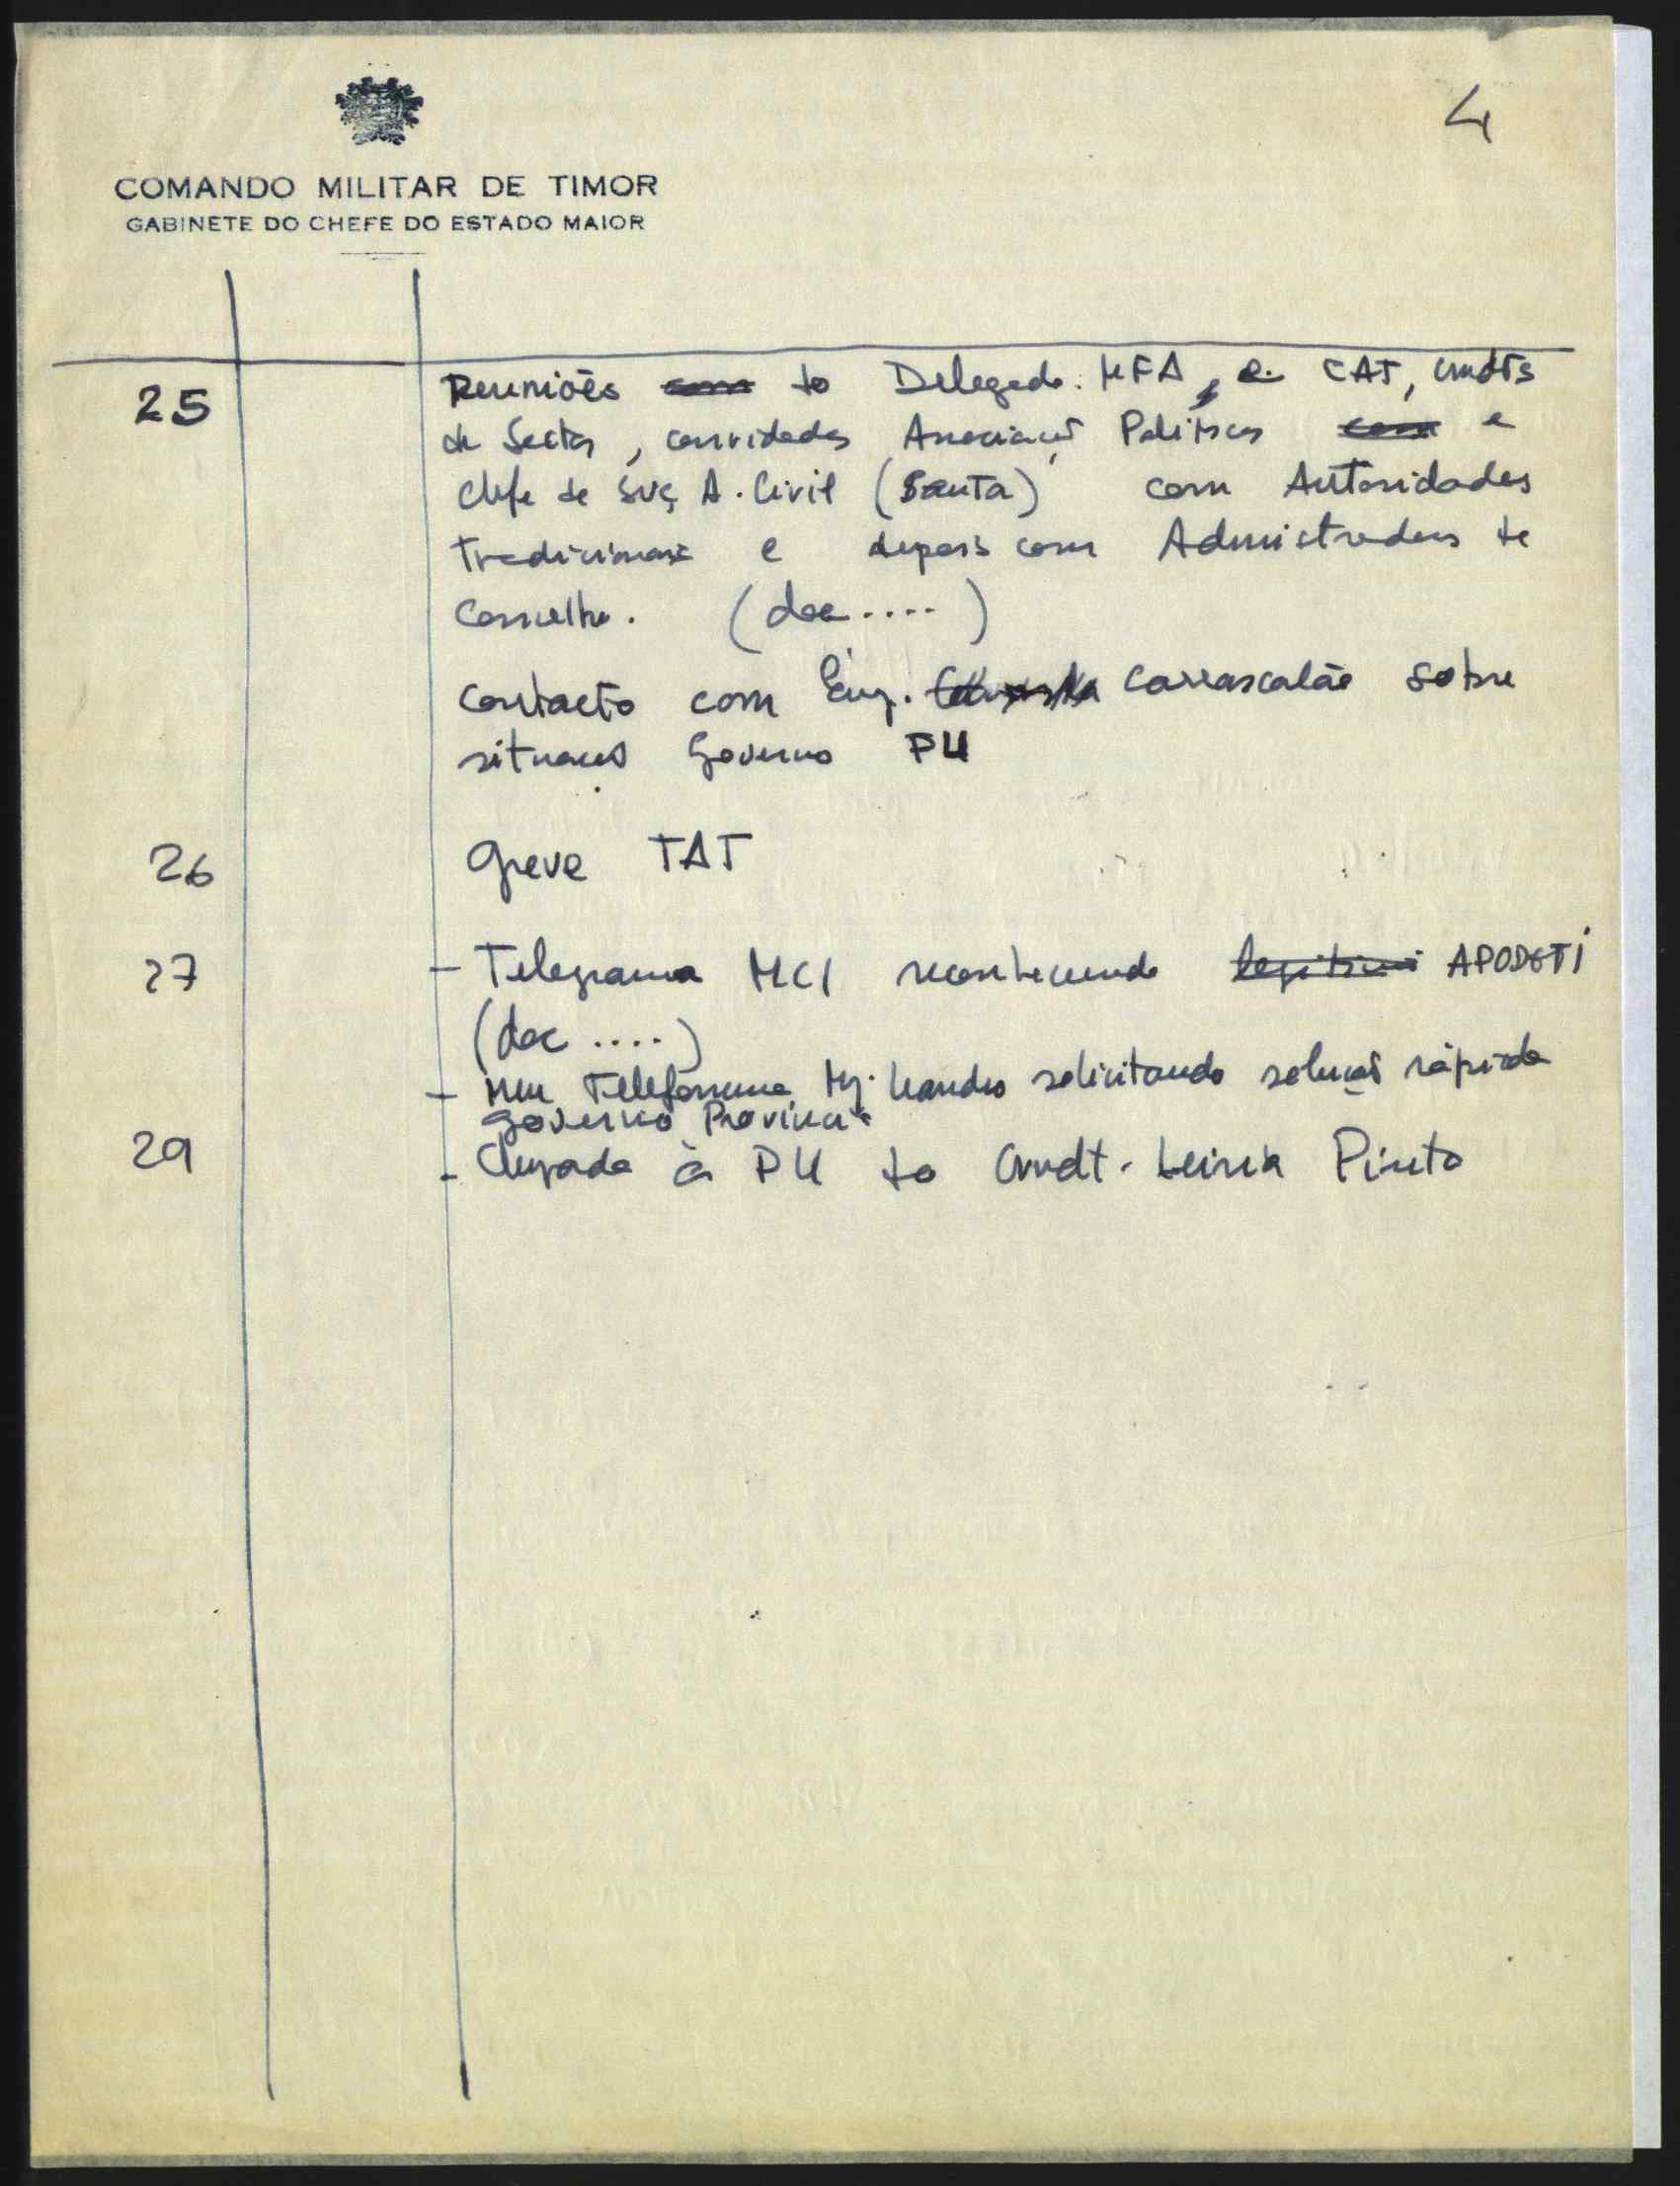 4
COMANDO MILITAR DE TIMOR
GABINETE DO CHEFE DO ESTADO MAIOR
25
Reuniões com do Delegado. MFA, e CAT, Cmdts
de Sector, convidados Associações Politicas com e
Chefe de Svç A. Civil (Santa) com Autoridades
tradicionais e depois com Administradores de
Concelho. (doc....)
Contacto com Eng. Carrascalão sobre
situação Governo PU
26 Greve TAT
27 - Telegrama MCI reconhecendo legitimi APODETI
(doc ....)
- Meu Telefonema Mj. Leandro solicitando solução rápida
Governo Provinci
29 - Chegada à PU do Cmdt. Leiria Pinto